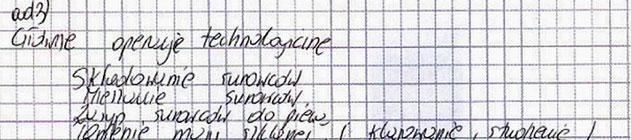 ad3)
Główne operacje technologiczne
Składowanie surowców
Mielenie surowców
Zasyp surowców do pieca
Topienie masy szklanej ( klarowanie , studzenie )